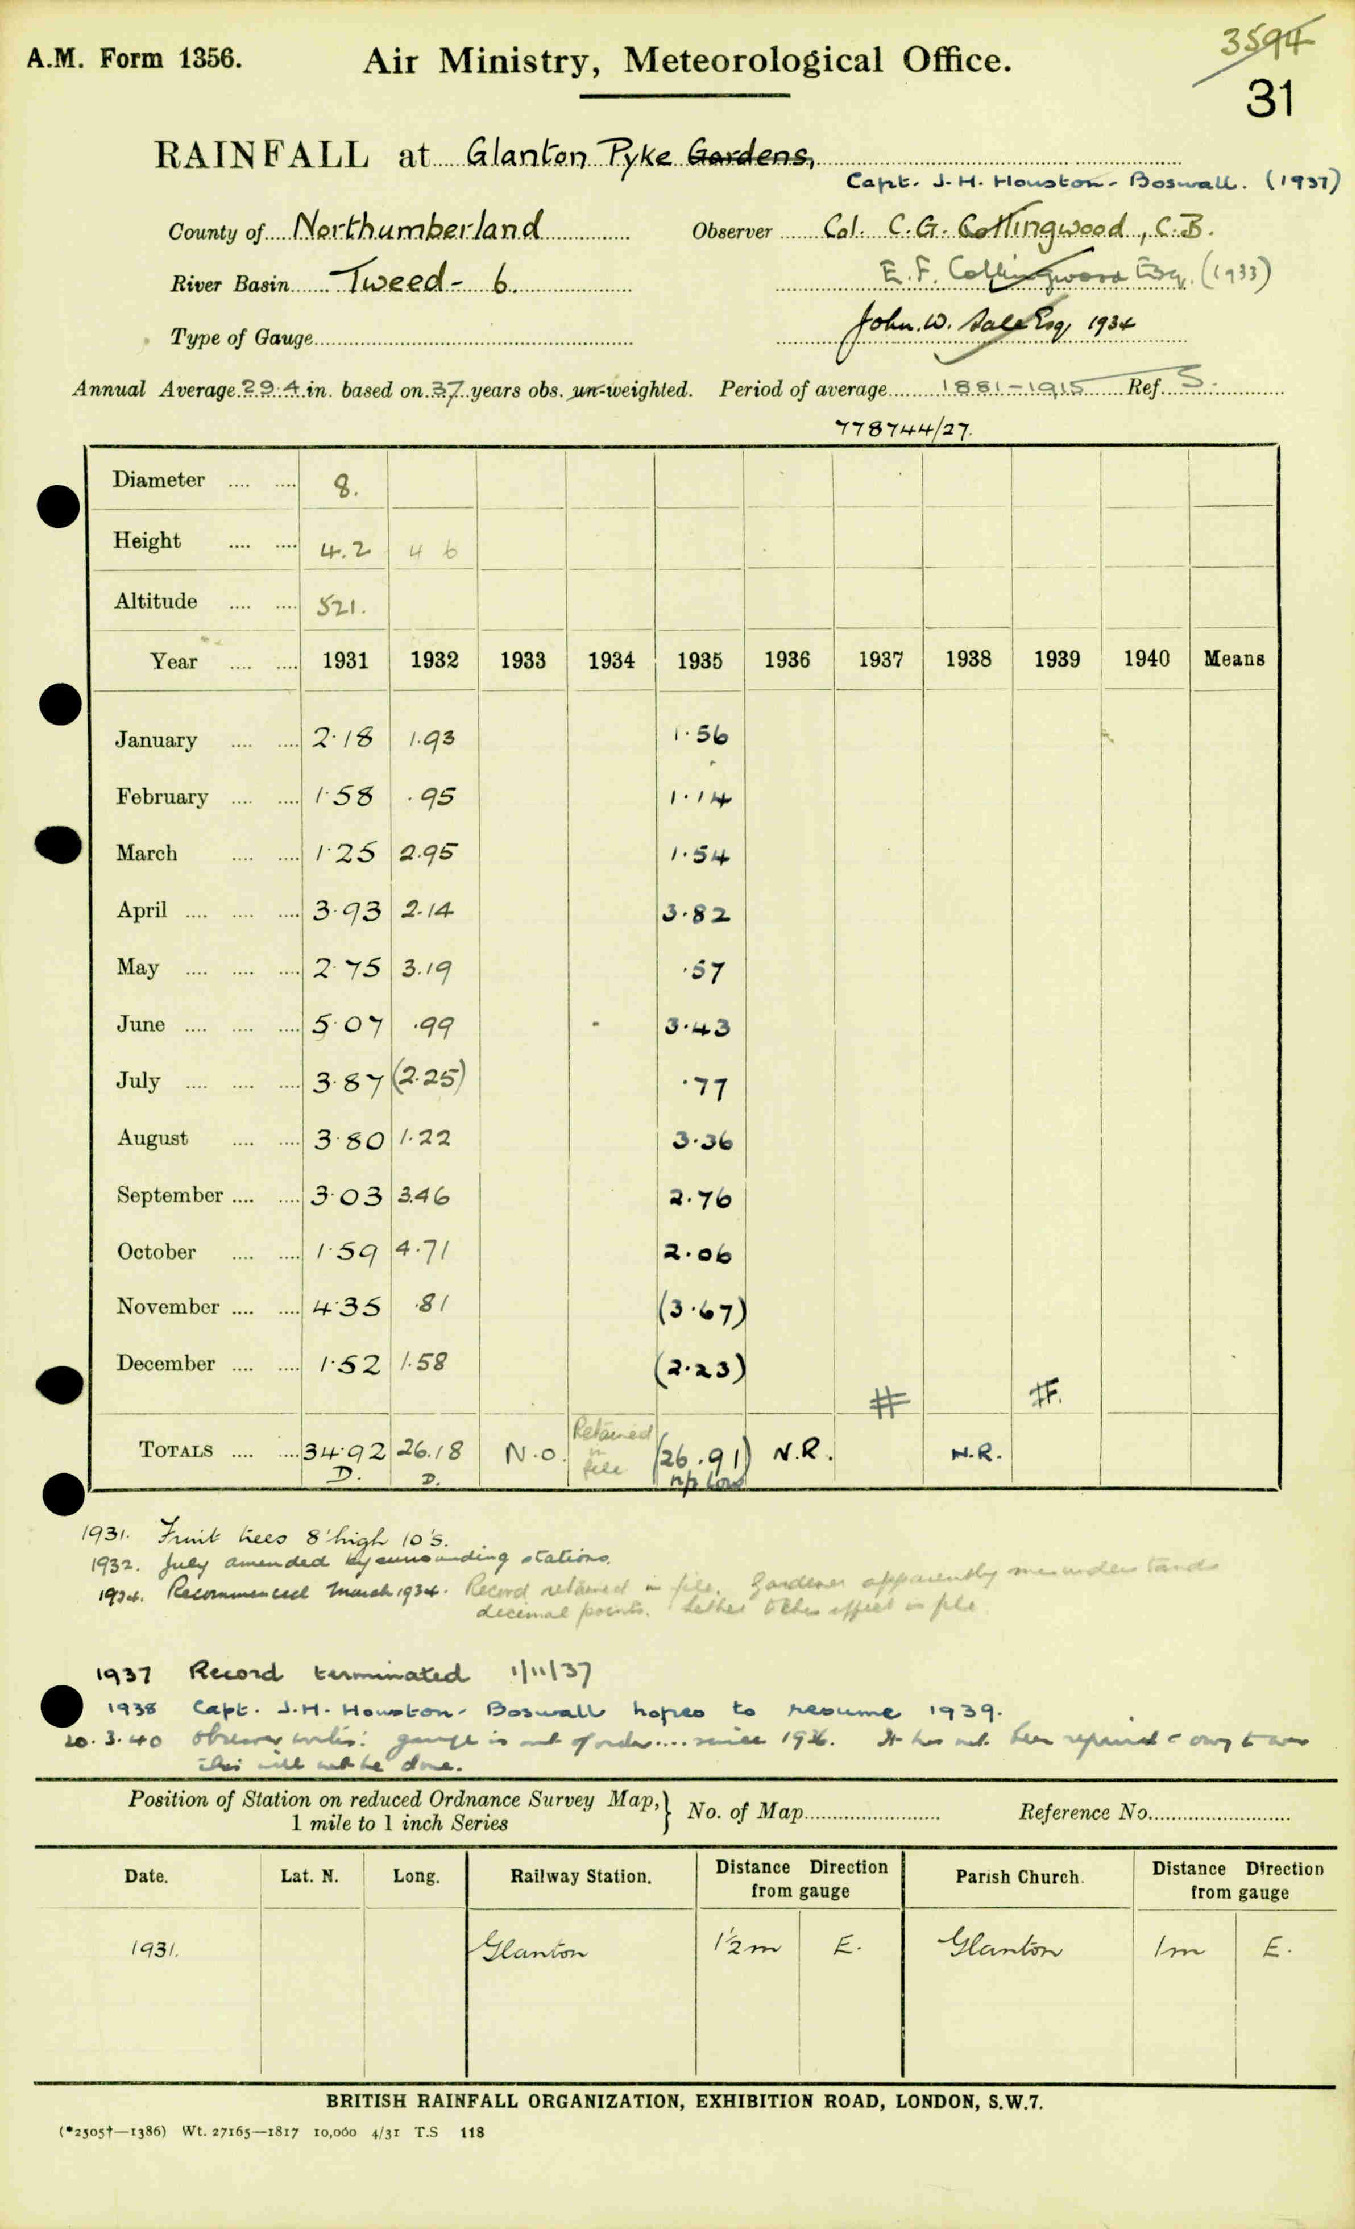 3594
A.M. Form 1356.
Air Ministry, Meteorological Office.
31
RAINFALL at Glanton Pyke Gardens,
Capt. J.H. Houston-Boswall. (1937)
County of Northumberland Observer Col. C.G. Collingwood, C.B.
River Basin Tweed - 6. E.F. Collingwood Esq. (1933)
Type of Gauge John. W. Sale Esq. 1934
Annual Average 29.4 in. based on 37 years obs. un-weighted. Period of average 1881-1915 Ref. S.
778744/27.
Diameter 8.
Height 4.2 4 6
Altitude 521.
Year 1931 1932 1933 1934 1935 1936 1937 1938 1939 1940 Means
January 2.18 1.93 1.56
February 1.58 .95 1.14
March 1.25 2.95 1.54
April 3.93 2.14 3.82
May 2.75 3.19 .57
June 5.07 .99 3.43
July 3.87 (2.25) .77
August 3.80 1.22 3.36
September 3.03 3.46 2.76
October 1.59 4.71 2.06
November 4.35 .81 (3.67)
December 1.52 1.58 (2.23)
TOTALS 34.92 26.18 N.O. Retained in file (26.91) N.R. # N.R. #
D. D. np low
1931. Fruit trees 8' high 10' S.
1932. July amended by surrounding stations.
1934. Recommenced March 1934. Record retained in file. Gardener apparently misunderstands
decimal points. Letter to this effect in file.
1937 Record terminated 1/11/37
1938 Capt. J.H. Houston-Boswall hopes to resume 1939.
20.3.40 Observer writes: gauge is out of order.... since 1936. It has not been repaired & owing to war
this will not be done.
Position of Station on reduced Ordnance Survey Map, 1 mile to 1 inch Series } No. of Map Reference No.
Date. Lat. N. Long. Railway Station. Distance Direction from gauge Parish Church. Distance Direction from gauge
1931. Glanton 1½ m E. Glanton 1m E.
BRITISH RAINFALL ORGANIZATION, EXHIBITION ROAD, LONDON, S.W.7.
(*2505†—1386) Wt. 27165—1817 10,000 4/31 T.S 118